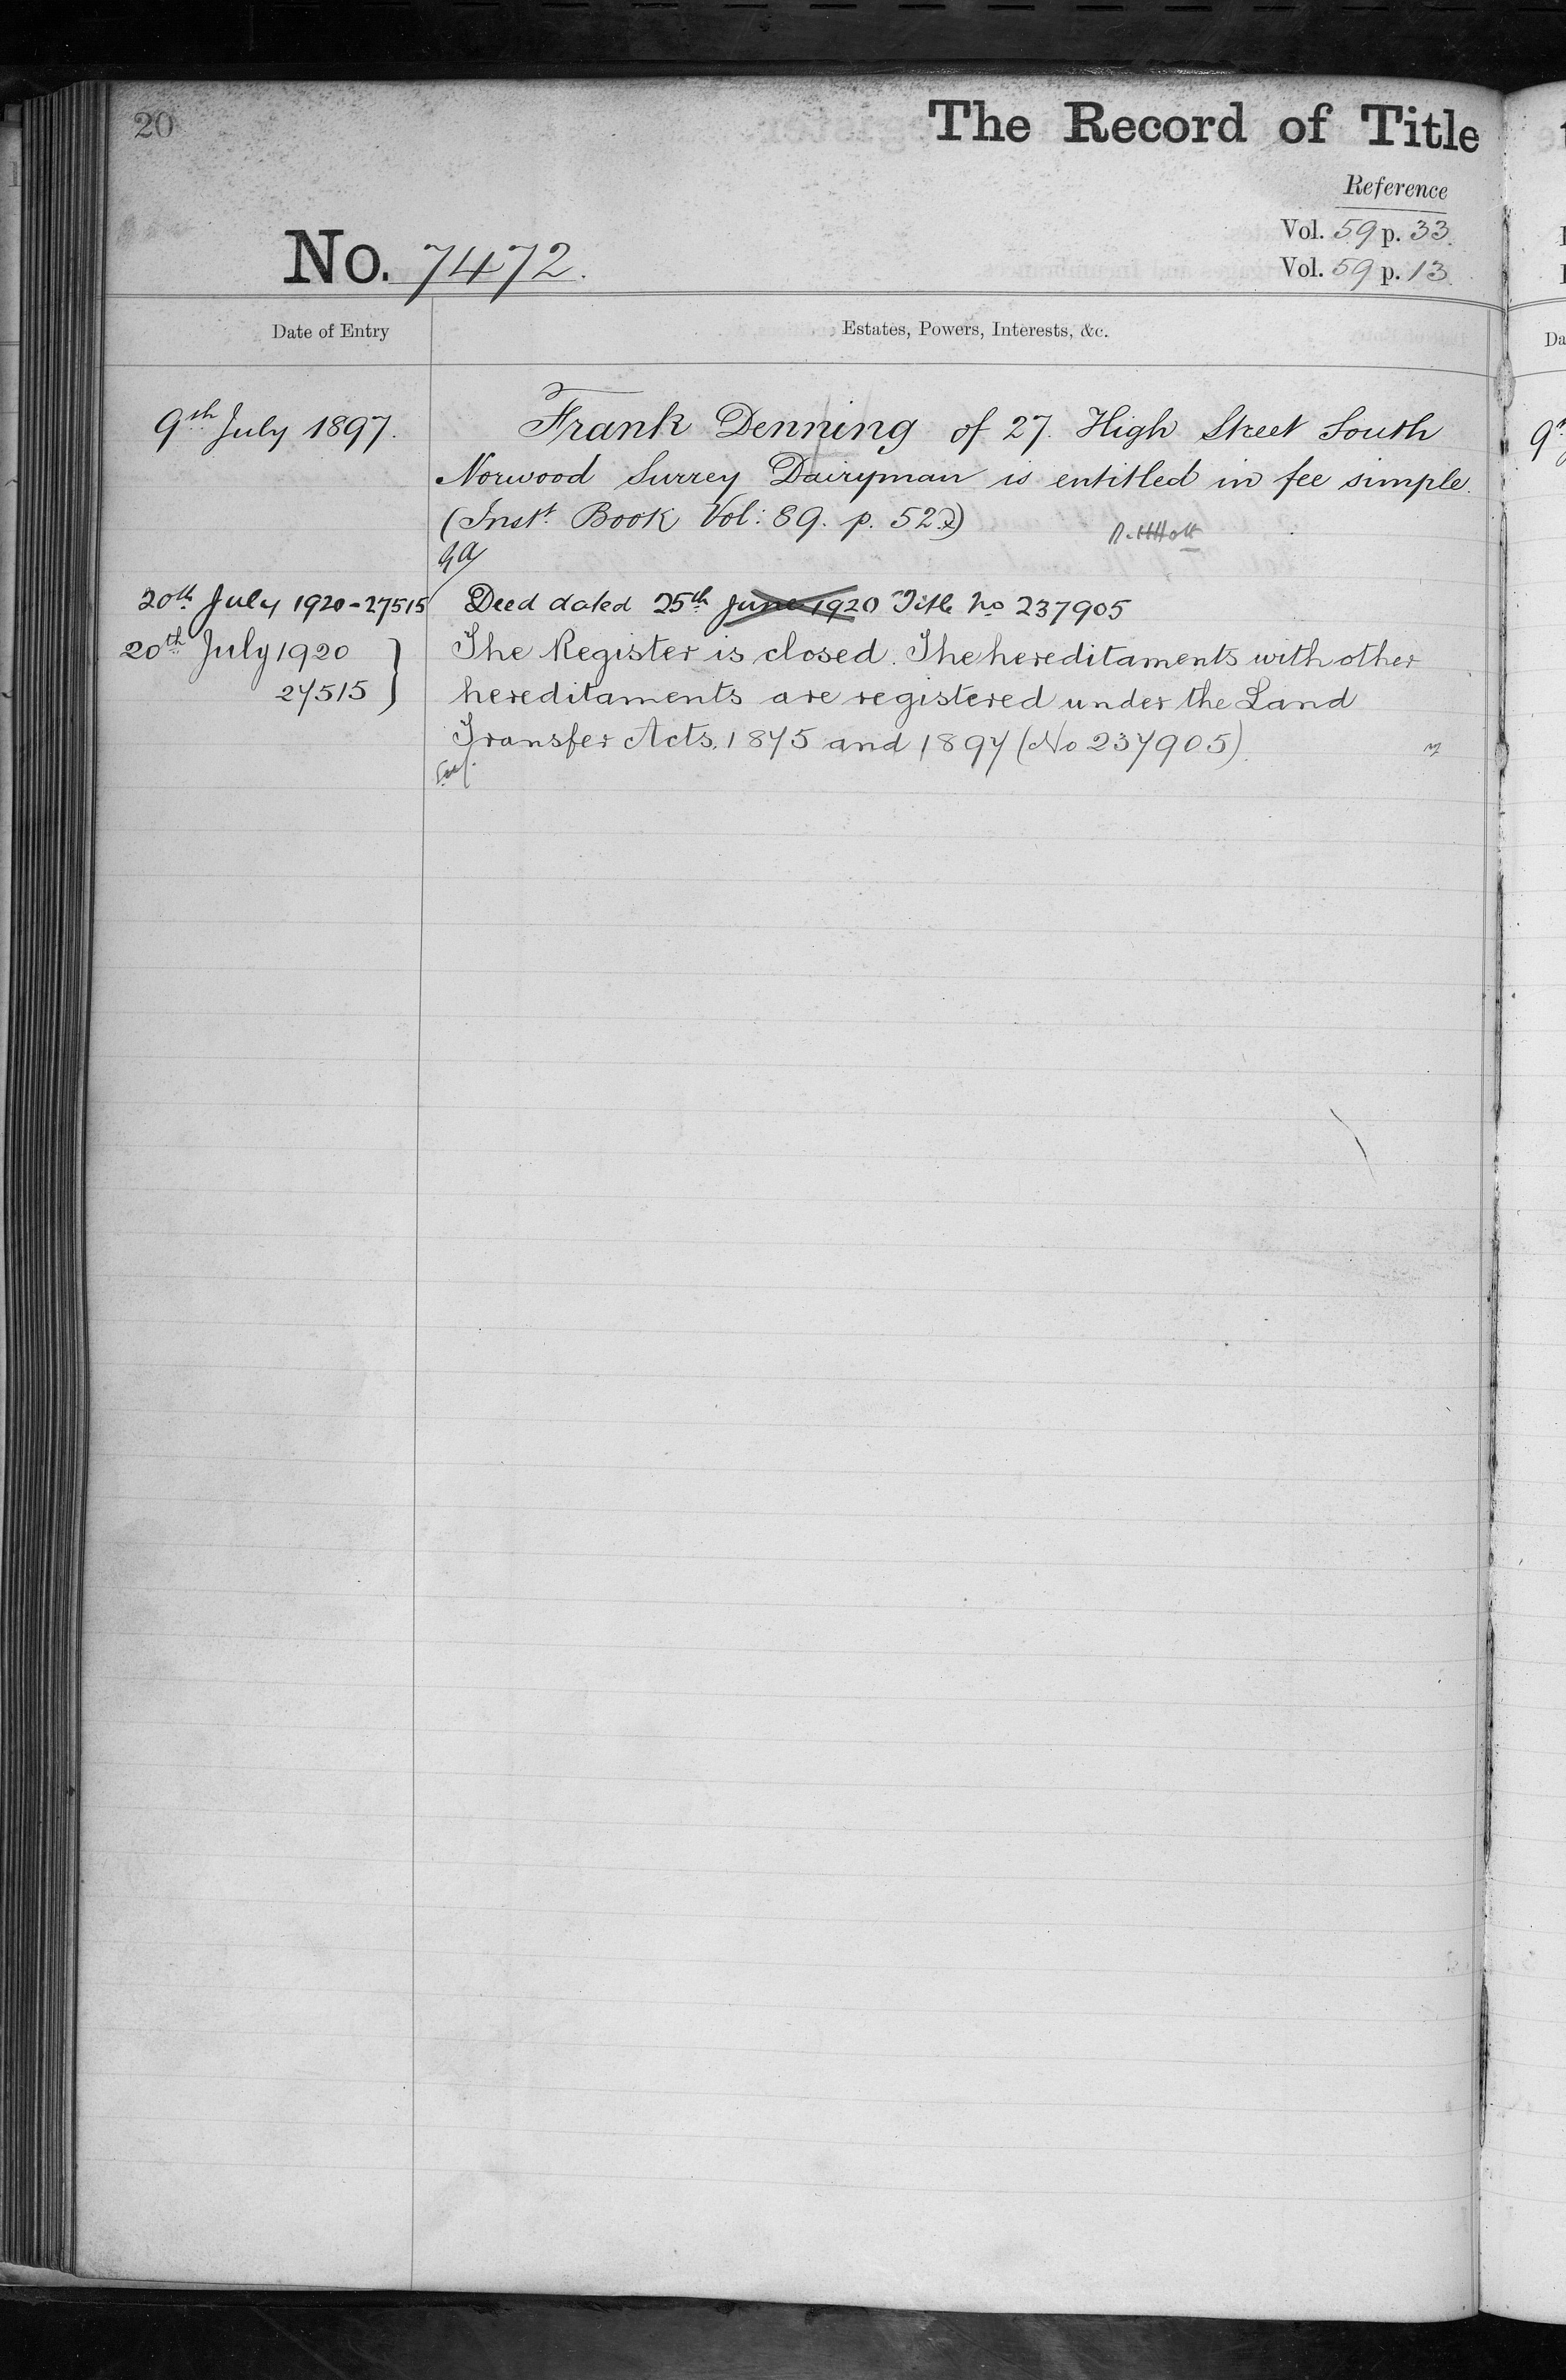 20
The Record of Title
Reference
Vol. 59 p. 33.
No. 7472.
Vol. 59 p. 13.
Date of Entry
Estates, Powers, Interests, &c.
9th July 1897.
Frank Denning of 27 High Street South
Norwood Surrey Dairyman is entitled in fee simple.
(Inst. Book Vol: 89. p. 527)
20th July 1920-27515
Deed dated 25th June 1920 Title No 237905
20th July 1920
27515
The Register is closed. The hereditaments with other
hereditaments are registered under the Land
Transfer Acts, 1875 and 1897 (No 237905).
Da